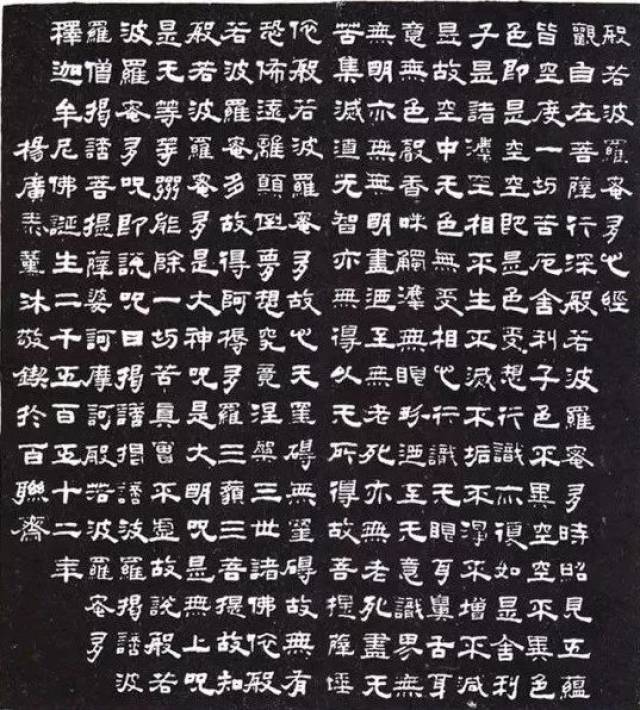 般若波羅蜜多心經
觀自在菩薩行深般若波羅蜜多時昭見五蘊
皆空度一切苦厄舍利子色不異空空不異色
色即是空空即是色受想行識亦復如是舍利
子是諸法空相不生不滅不垢不淨不增不減
是故空中无色無受相心行識无眼耳鼻舌身
意無色聲香味觸法無眼界迺至无意識界無
無明亦無無明盡迺至無老死亦無老死盡无
苦集滅道无智亦無得以无所得故菩提薩埵
依般若波羅蜜多故心无罣碍無罣碍故無有
恐怖遠離顛倒夢想究竟涅槃三世諸佛依般
若波羅蜜多故得阿耨多羅三藐三菩提故知
般若波羅蜜多是大神咒是大明咒是無上咒
是无等等咒能除一切苦真實不虛故說般若
波羅蜜多咒即說咒曰揭諦揭諦波羅揭諦波
羅僧揭諦菩提薩婆訶摩訶般若波羅蜜多
釋迦牟尼佛誕生二千五百五十二年
楊廣泰薰沐敬鍥於百聯齋